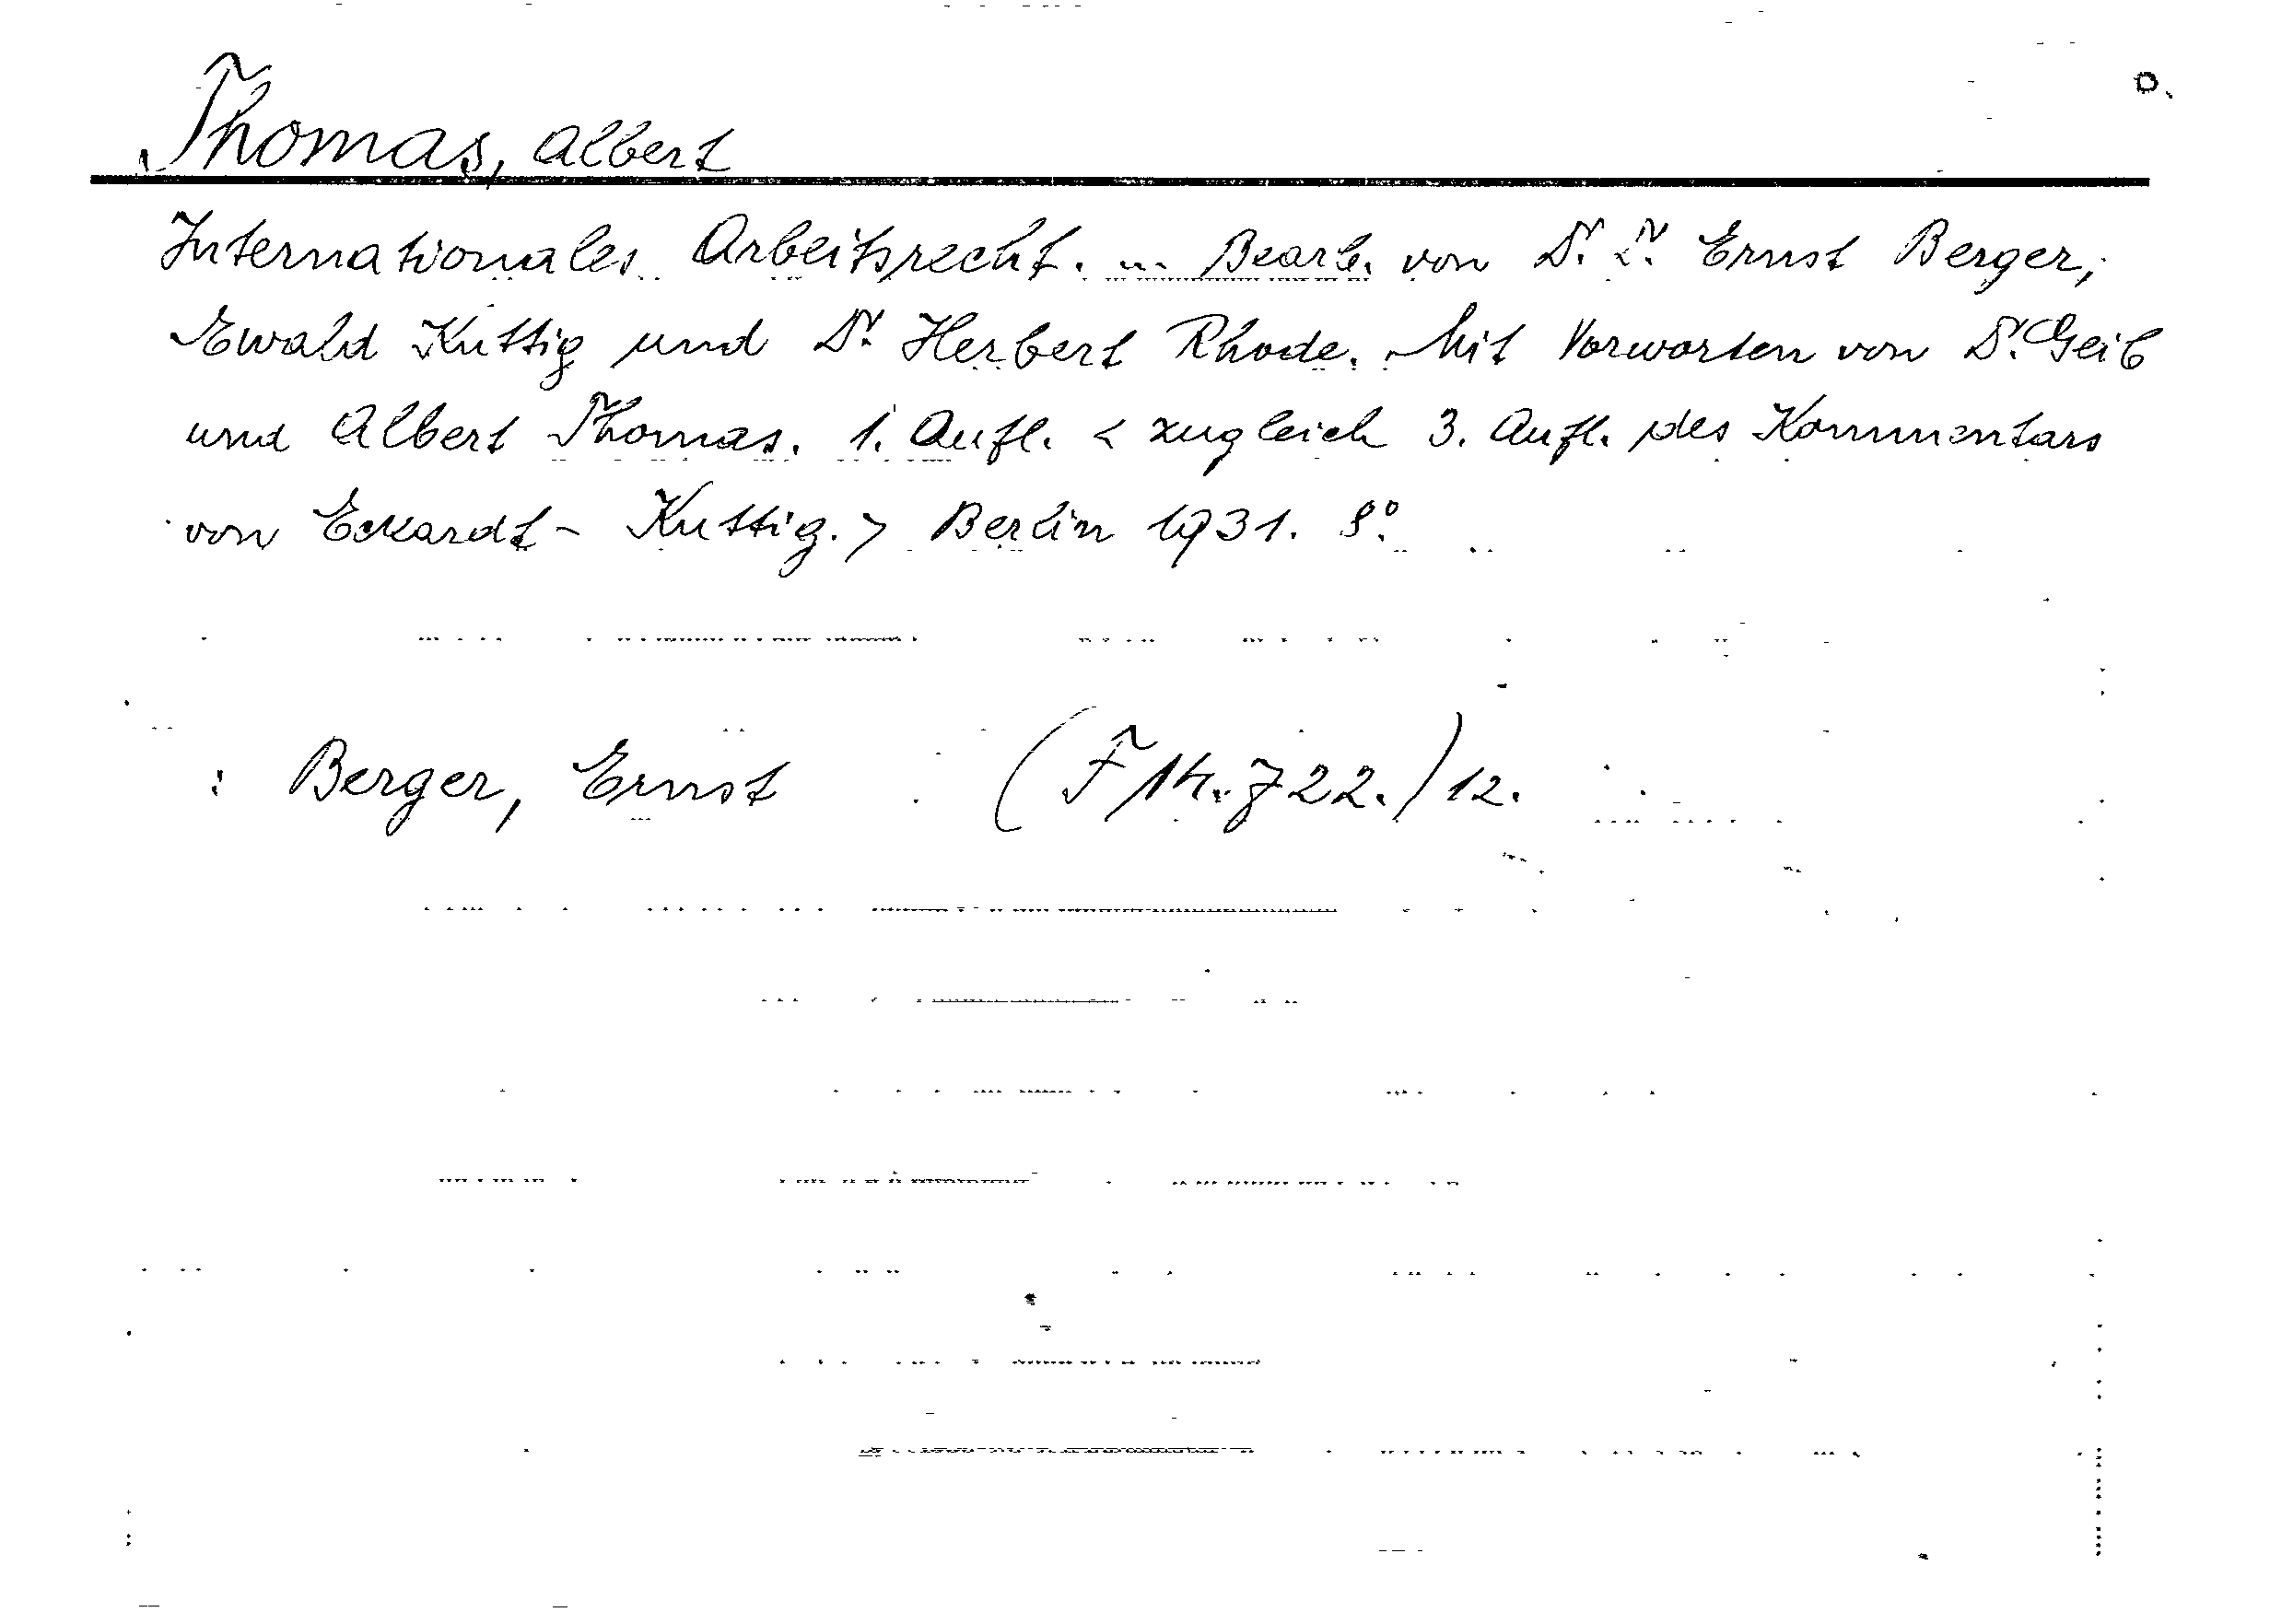 Thomas, Albert
Internationales Arbeitsrecht. ... Bearb. von Dr. Dr. Ernst Berger,
Ewald Kuttig und Dr. Herbert Rhode. Mit Vorworten von Dr. Geib
und Albert Thomas. 1. Aufl. < zugleich 3. Aufl. des Kommentars
von Eckardt - Kuttig. > Berlin 1931. 8°.
: Berger, Ernst (F 14. 722.) 12.